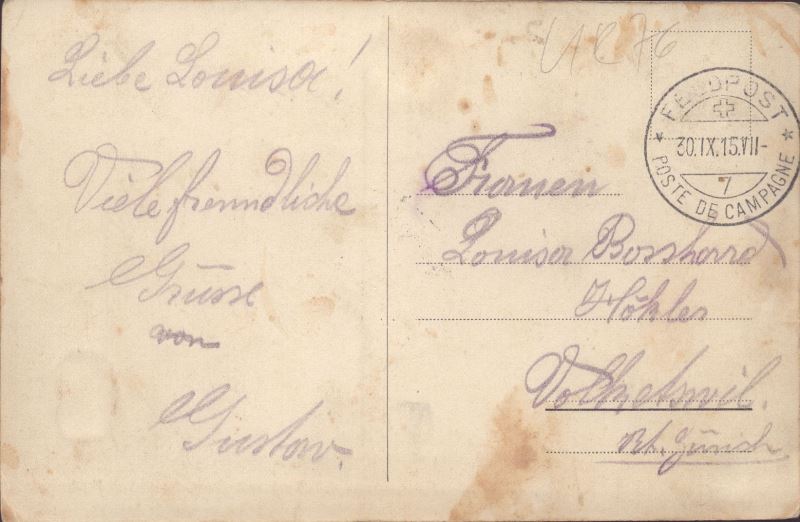 Liebe Louisa!
Viele freundliche
Grüsse
von
Gustav.
FELDPOST
30.IX.15.VII-
7
POSTE DE CAMPAGNE
Frauen
Louisa Bosshard
Volketswil.
Kt. Zürich